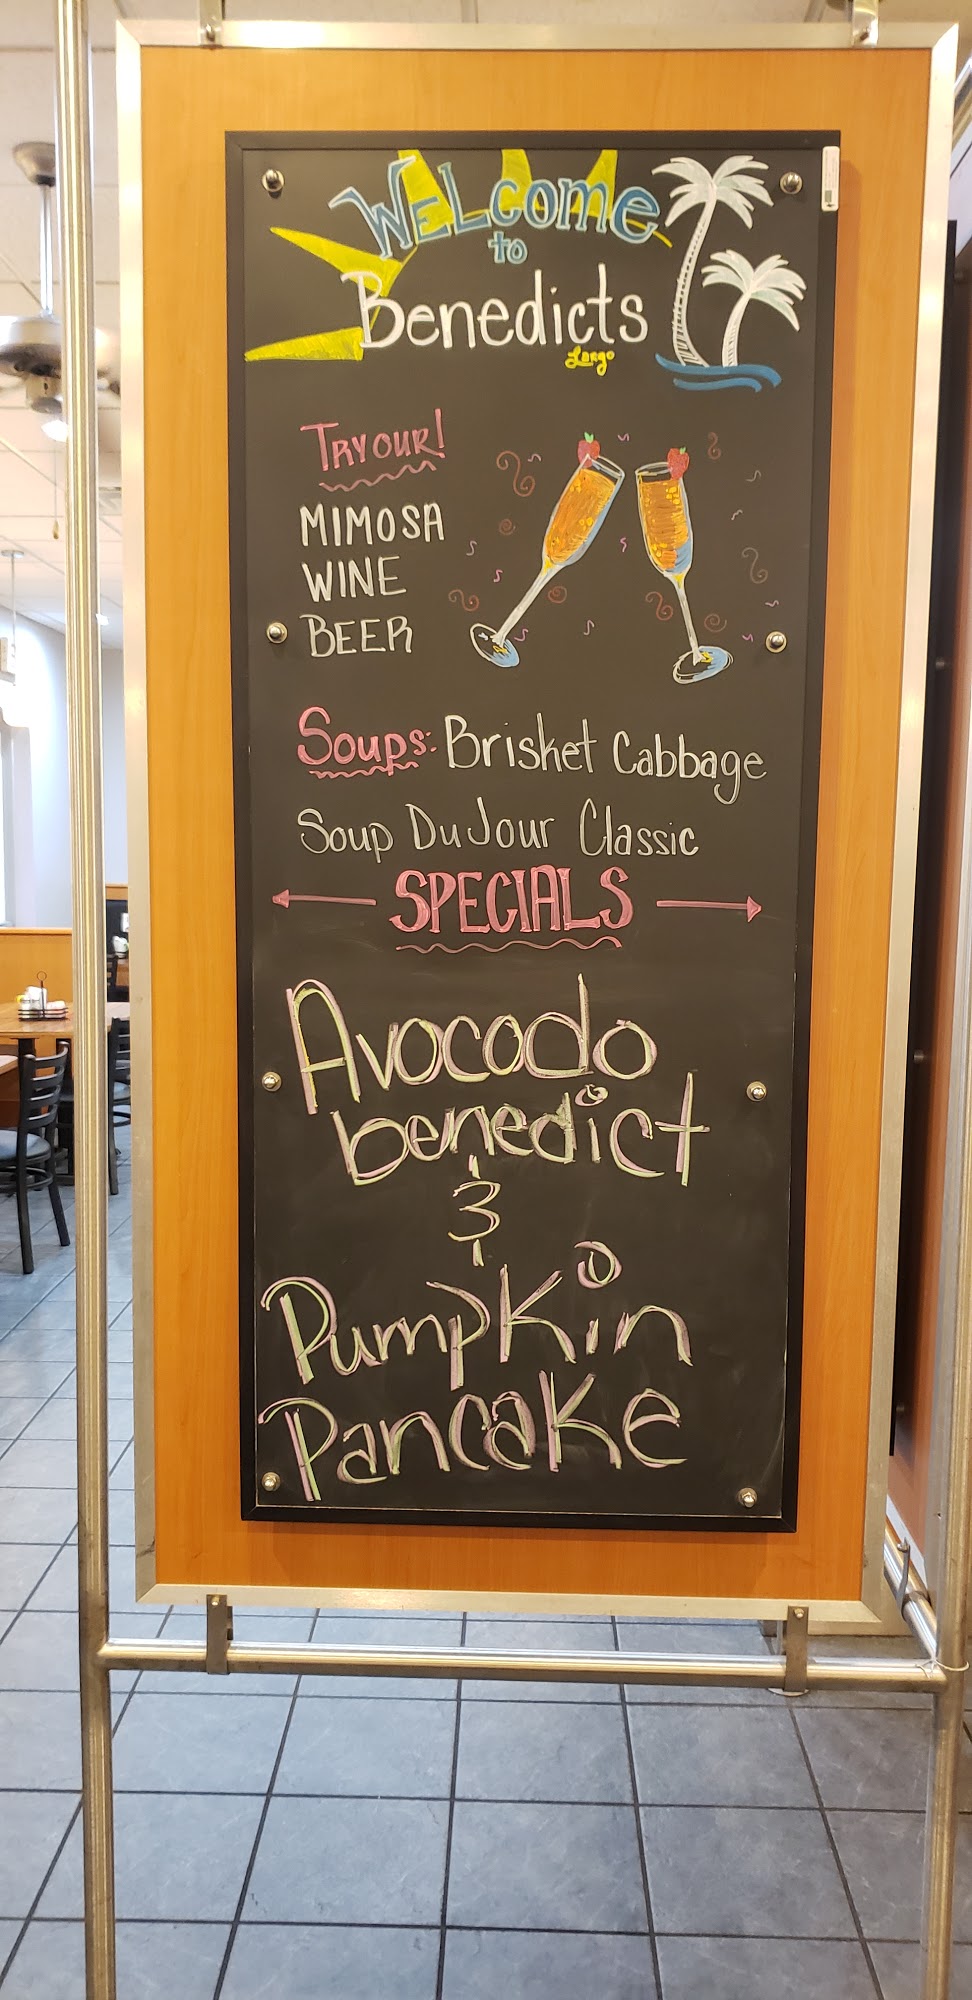 WELcome
to
Benedicts
Largo
TRY OUR!
MIMOSA
WINE
BEER
Soups: Brisket Cabbage
Soup Du Jour Classic
SPECIALS
Avocodo
benedict
&
Pumpkin
Pancake